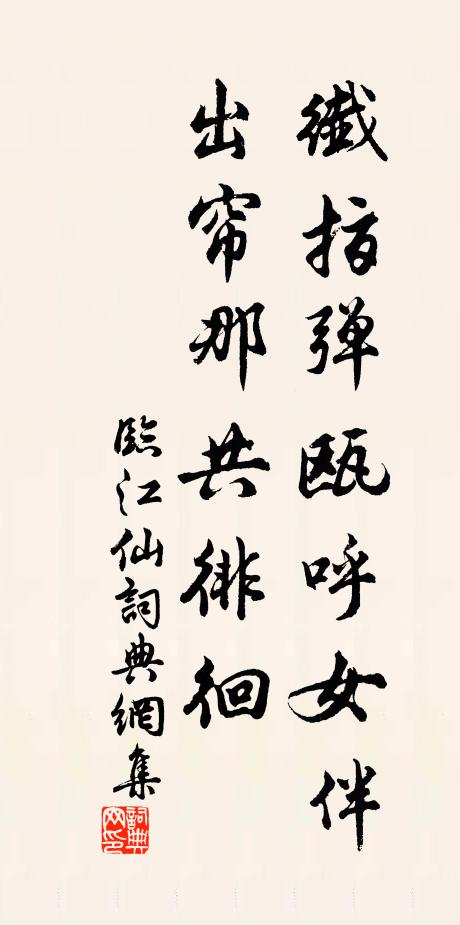 纖指弹瓯呼女伴
出帘那共徘徊
臨江仙詞典網集
詞典
网印